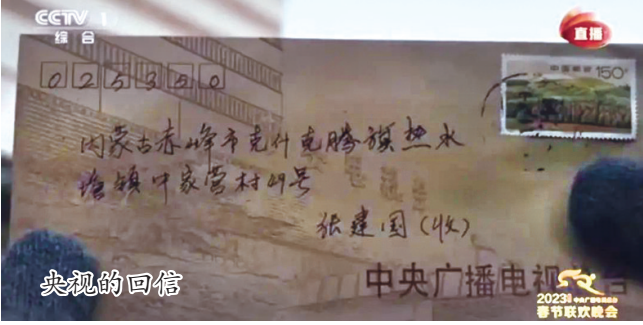 CCTV 1
综合
直播
025350
中国邮政
150分
内蒙古赤峰市克什克腾旗热水
塘镇叶家营村49号
张建国(收)
央视的回信
中央广播电视总台
2023
中央广播电视总台
春节联欢晚会